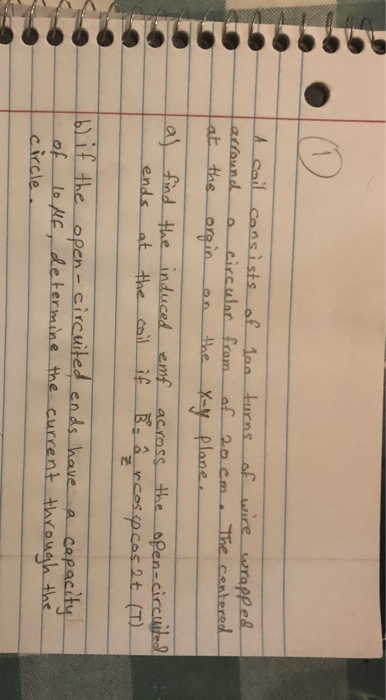 1
A coil consists of 100 turns of wire wrapped
arround a circular from of 20 cm. The centered
at the orgin on the x-y plane.
a) find the induced emf across the open-circuited
ends at the coil if B = â_z r cos φ cos 2t (T)
b) if the open-circuited ends have a capacity
of 10 μF, determine the current through the
circle.